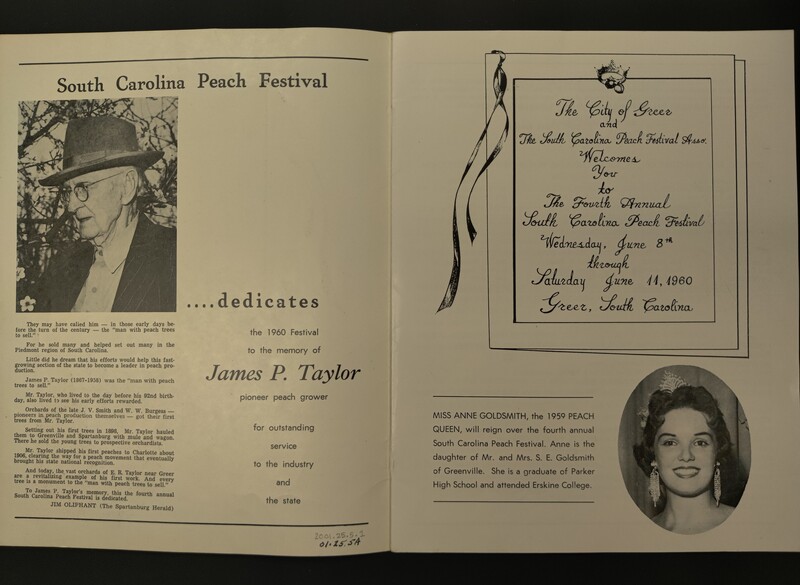 South Carolina Peach Festival
....dedicates
They may have called him — in those early days be-
fore the turn of the century — the "man with peach trees
to sell."
For he sold many and helped set out many in the
Piedmont region of South Carolina.
Little did he dream that his efforts would help this fast-
growing section of the state to become a leader in peach pro-
duction.
James P. Taylor (1867-1958) was the "man with peach
trees to sell."
Mr. Taylor, who lived to the day before his 92nd birth-
day, also lived to see his early efforts rewarded.
Orchards of the late J. V. Smith and W. W. Burgess —
pioneers in peach production themselves — got their first
trees from Mr. Taylor.
Setting out his first trees in 1898, Mr. Taylor hauled
them to Greenville and Spartanburg with mule and wagon.
There he sold the young trees to prospective orchardists.
Mr. Taylor shipped his first peaches to Charlotte about
1906, clearing the way for a peach movement that eventually
brought his state national recognition.
And today, the vast orchards of E. R. Taylor near Greer
are a revitalising example of his first work. And every
tree is a monument to the "man with peach trees to sell."
To James P. Taylor's memory, this the fourth annual
South Carolina Peach Festival is dedicated.
JIM OLIPHANT (The Spartanburg Herald)
the 1960 Festival
to the memory of
James P. Taylor
pioneer peach grower
for outstanding
service
to the industry
and
the state
01.25.5A
The City of Greer
and
The South Carolina Peach Festival Asso.
Welcomes
You
to
The Fourth Annual
South Carolina Peach Festival
Wednesday, June 8th
through
Saturday June 11, 1960
Greer, South Carolina
MISS ANNE GOLDSMITH, the 1959 PEACH
QUEEN, will reign over the fourth annual
South Carolina Peach Festival. Anne is the
daughter of Mr. and Mrs. S. E. Goldsmith
of Greenville. She is a graduate of Parker
High School and attended Erskine College.